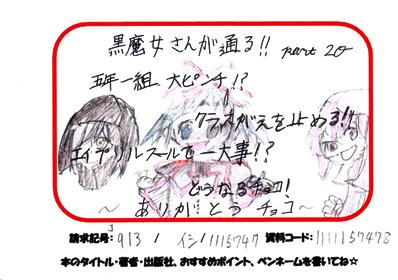 黒魔女さんが通る!! part 20
五年一組、大ピンチ!?
クラスがえを止める!!
エイプリルスールを一大事!?
どうなるチョコ!
~ありがとうチョコ~
請求記号:J913 / イシ/ 111157474 資料コード:1111157473
本のタイトル・著者・出版社、おすすめポイント、ペンネームを書いてね☆